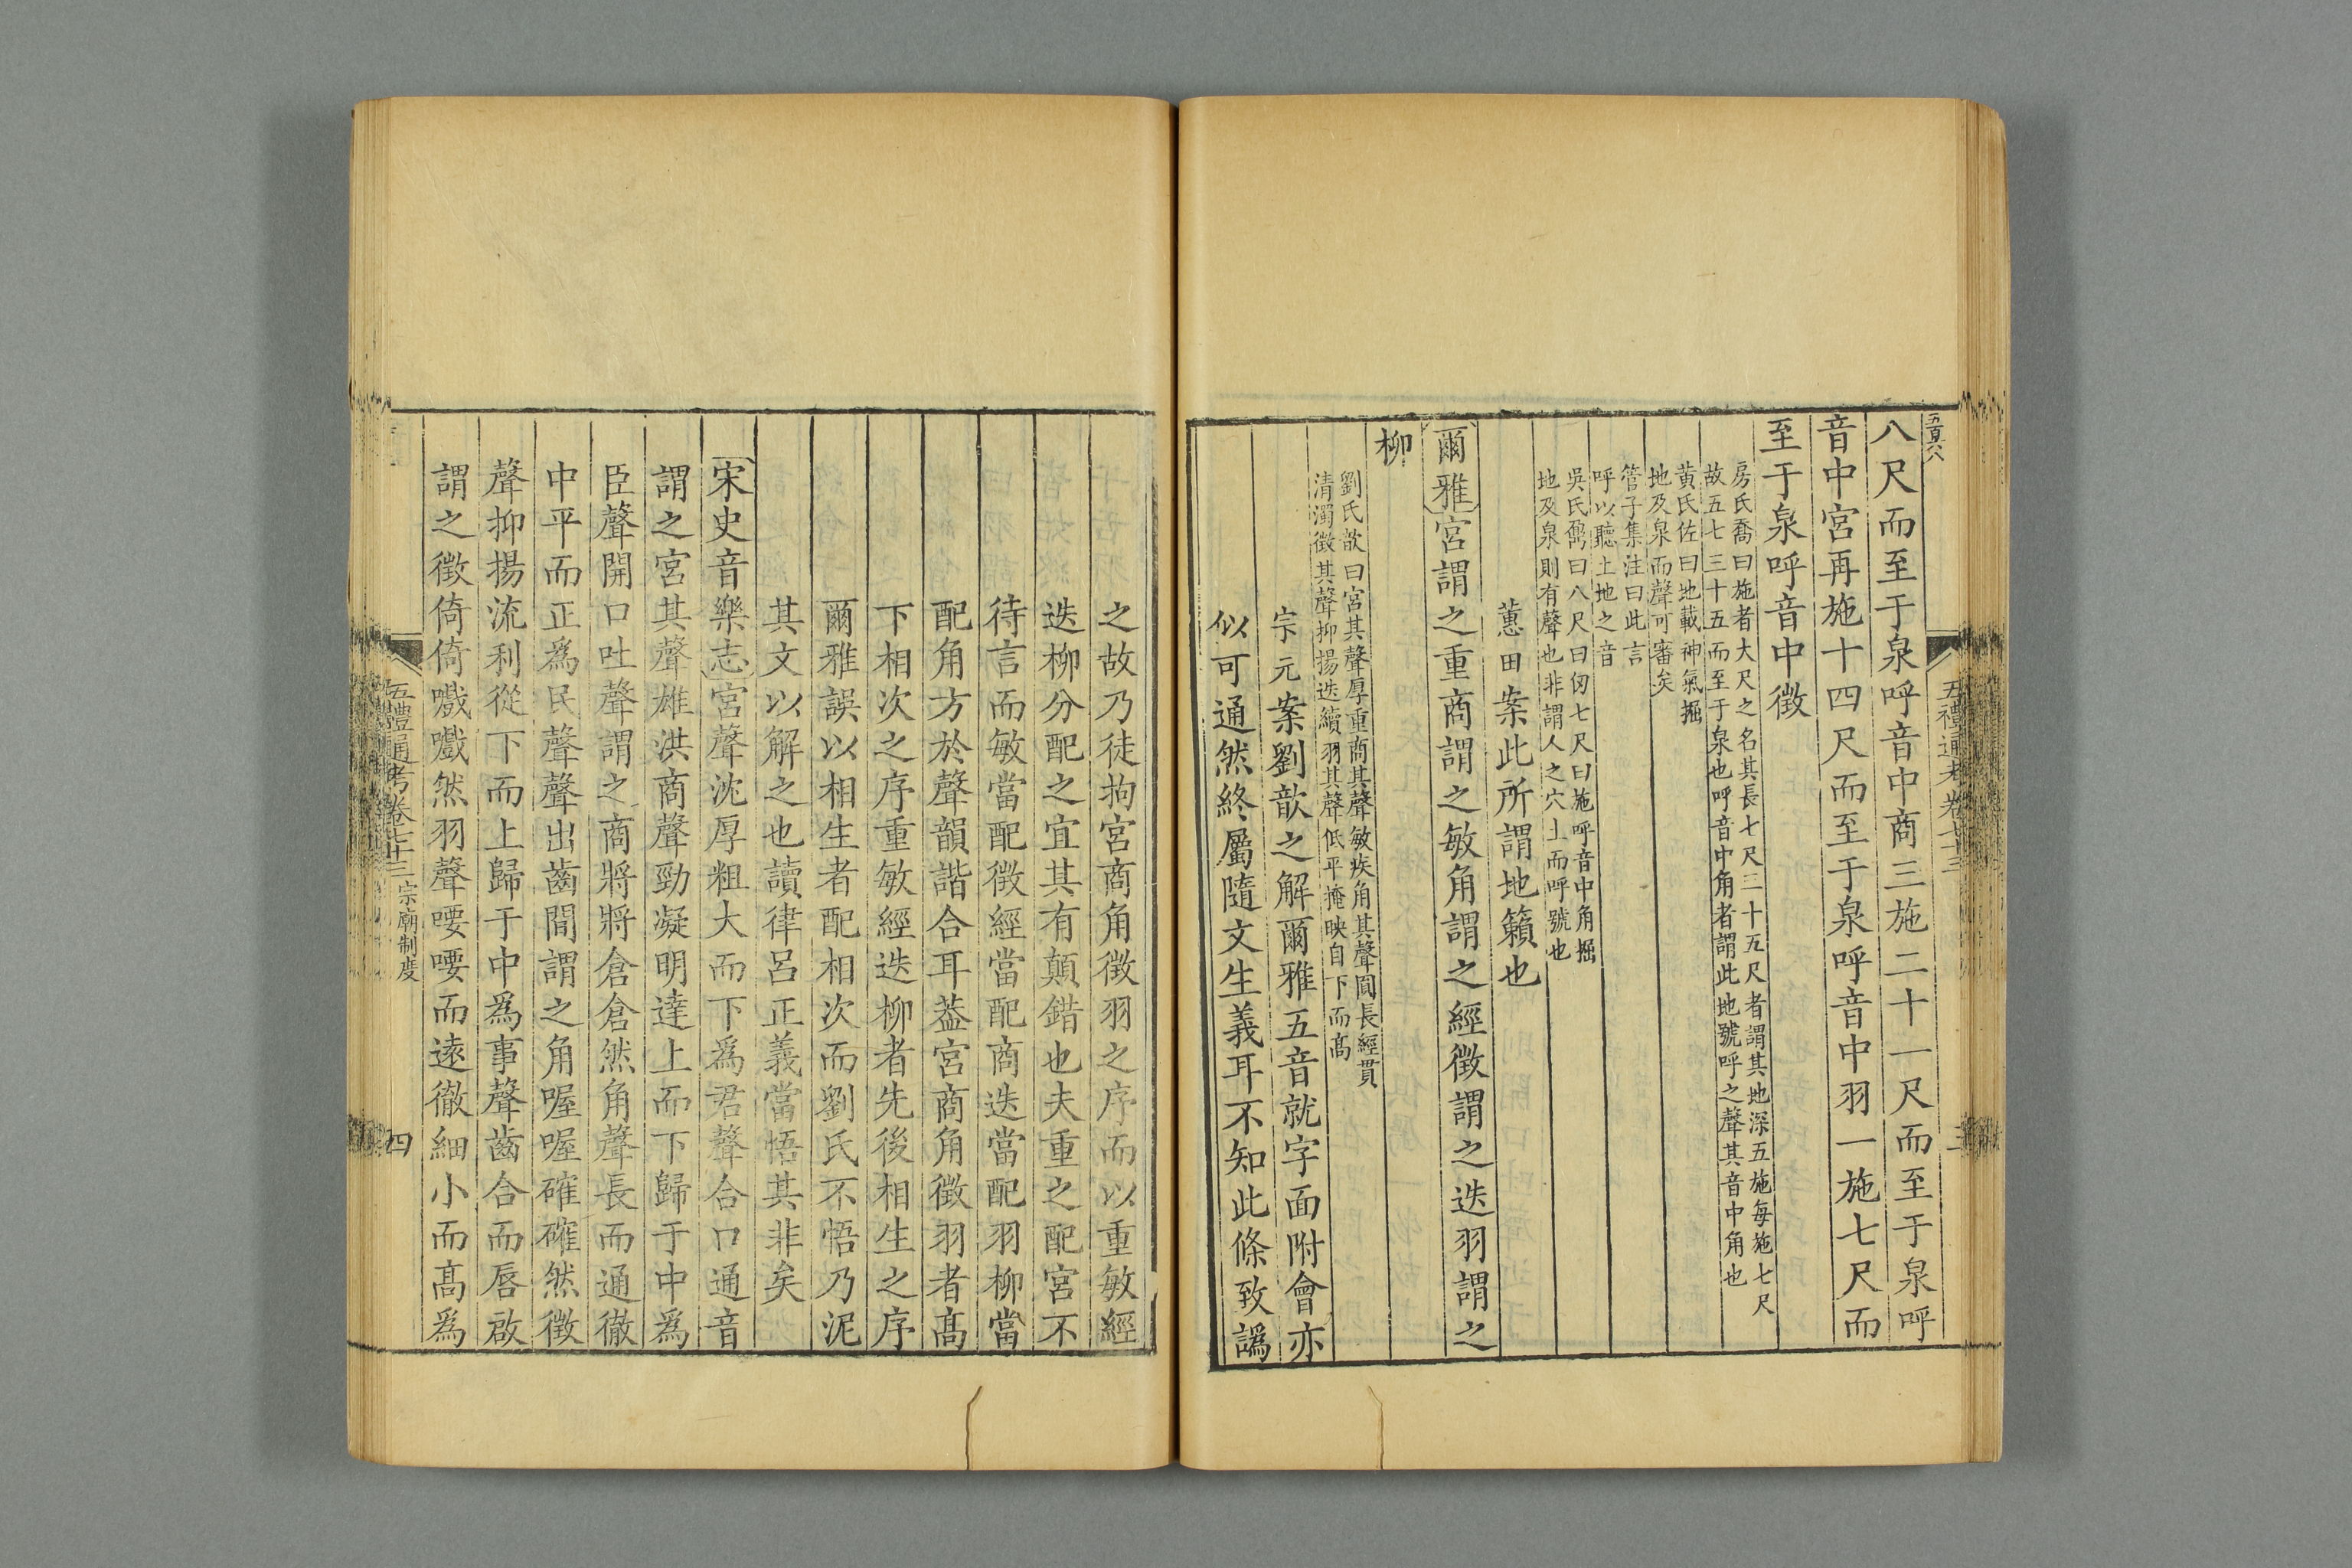 五百六八
八尺而至于泉呼音中商三施二十一尺而至于泉呼
音中宮再施十四尺而至于泉呼音中羽一施七尺而
至于泉呼音中徵
房氏喬曰施者大尺之名其長七尺三十五尺者謂其地深五施每施七尺
故五七三十五而至于泉也呼音中角者謂此地號呼之聲其音中角也
黄氏佐曰地載神氣掘
地及泉而聲可審矣
管子集注曰此言
呼以聽土地之音
吳氏鼐曰八尺曰仞七尺曰施呼音中角掘
地及泉則有聲也非謂人之穴土而呼號也
蕙田案此所謂地籟也
爾雅宮謂之重商謂之敏角謂之經徵謂之迭羽謂之
柳
劉氏歆曰宮其聲厚重商其聲敏疾角其聲圓長經貫
清濁徵其聲抑揚迭續羽其聲低平掩映自下而髙
宗元案劉歆之解爾雅五音就字面附會亦
似可通然終屬隨文生義耳不知此條致譌
五禮通考卷七十三
三
之故乃徒拘宮商角徵羽之序而以重敏經
迭柳分配之宜其有顛錯也夫重之配宮不
待言而敏當配徵經當配商迭當配羽柳當
配角方於聲韻諧合耳葢宮商角徵羽者髙
下相次之序重敏經迭柳者先後相生之序
爾雅誤以相生者配相次而劉氏不悟乃泥
其文以解之也讀律呂正義當悟其非矣
宋史音樂志宮聲沈厚粗大而下爲君聲合口通音
謂之宮其聲雄洪商聲勁凝明達上而下歸于中爲
臣聲開口吐聲謂之商將將倉倉然角聲長而通徹
中平而正爲民聲聲出齒間謂之角喔喔確確然徵
聲抑揚流利從下而上歸于中爲事聲齒合而唇啟
謂之徵倚倚嚱嚱然羽聲喓喓而遠徹細小而髙爲
五禮通考卷七十三 宗廟制度
四